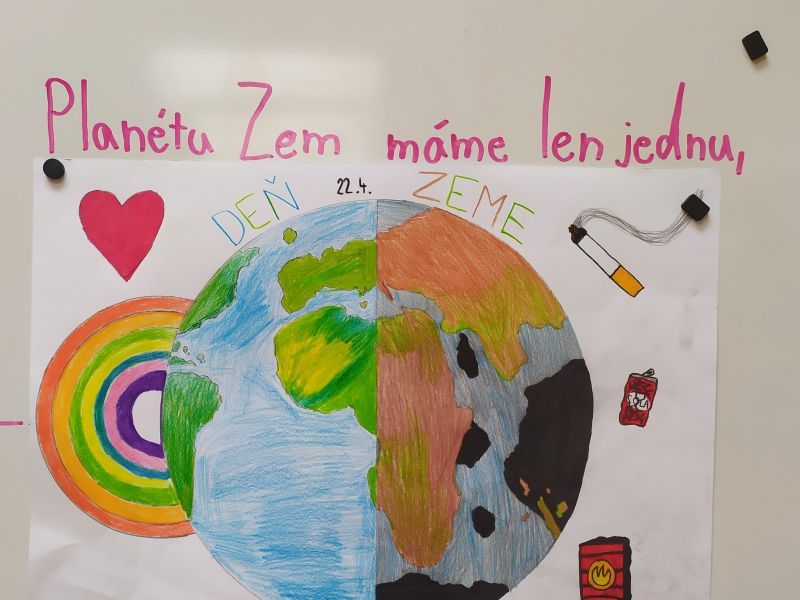 Planétu Zem máme len jednu,
DEŇ 22.4. ZEME